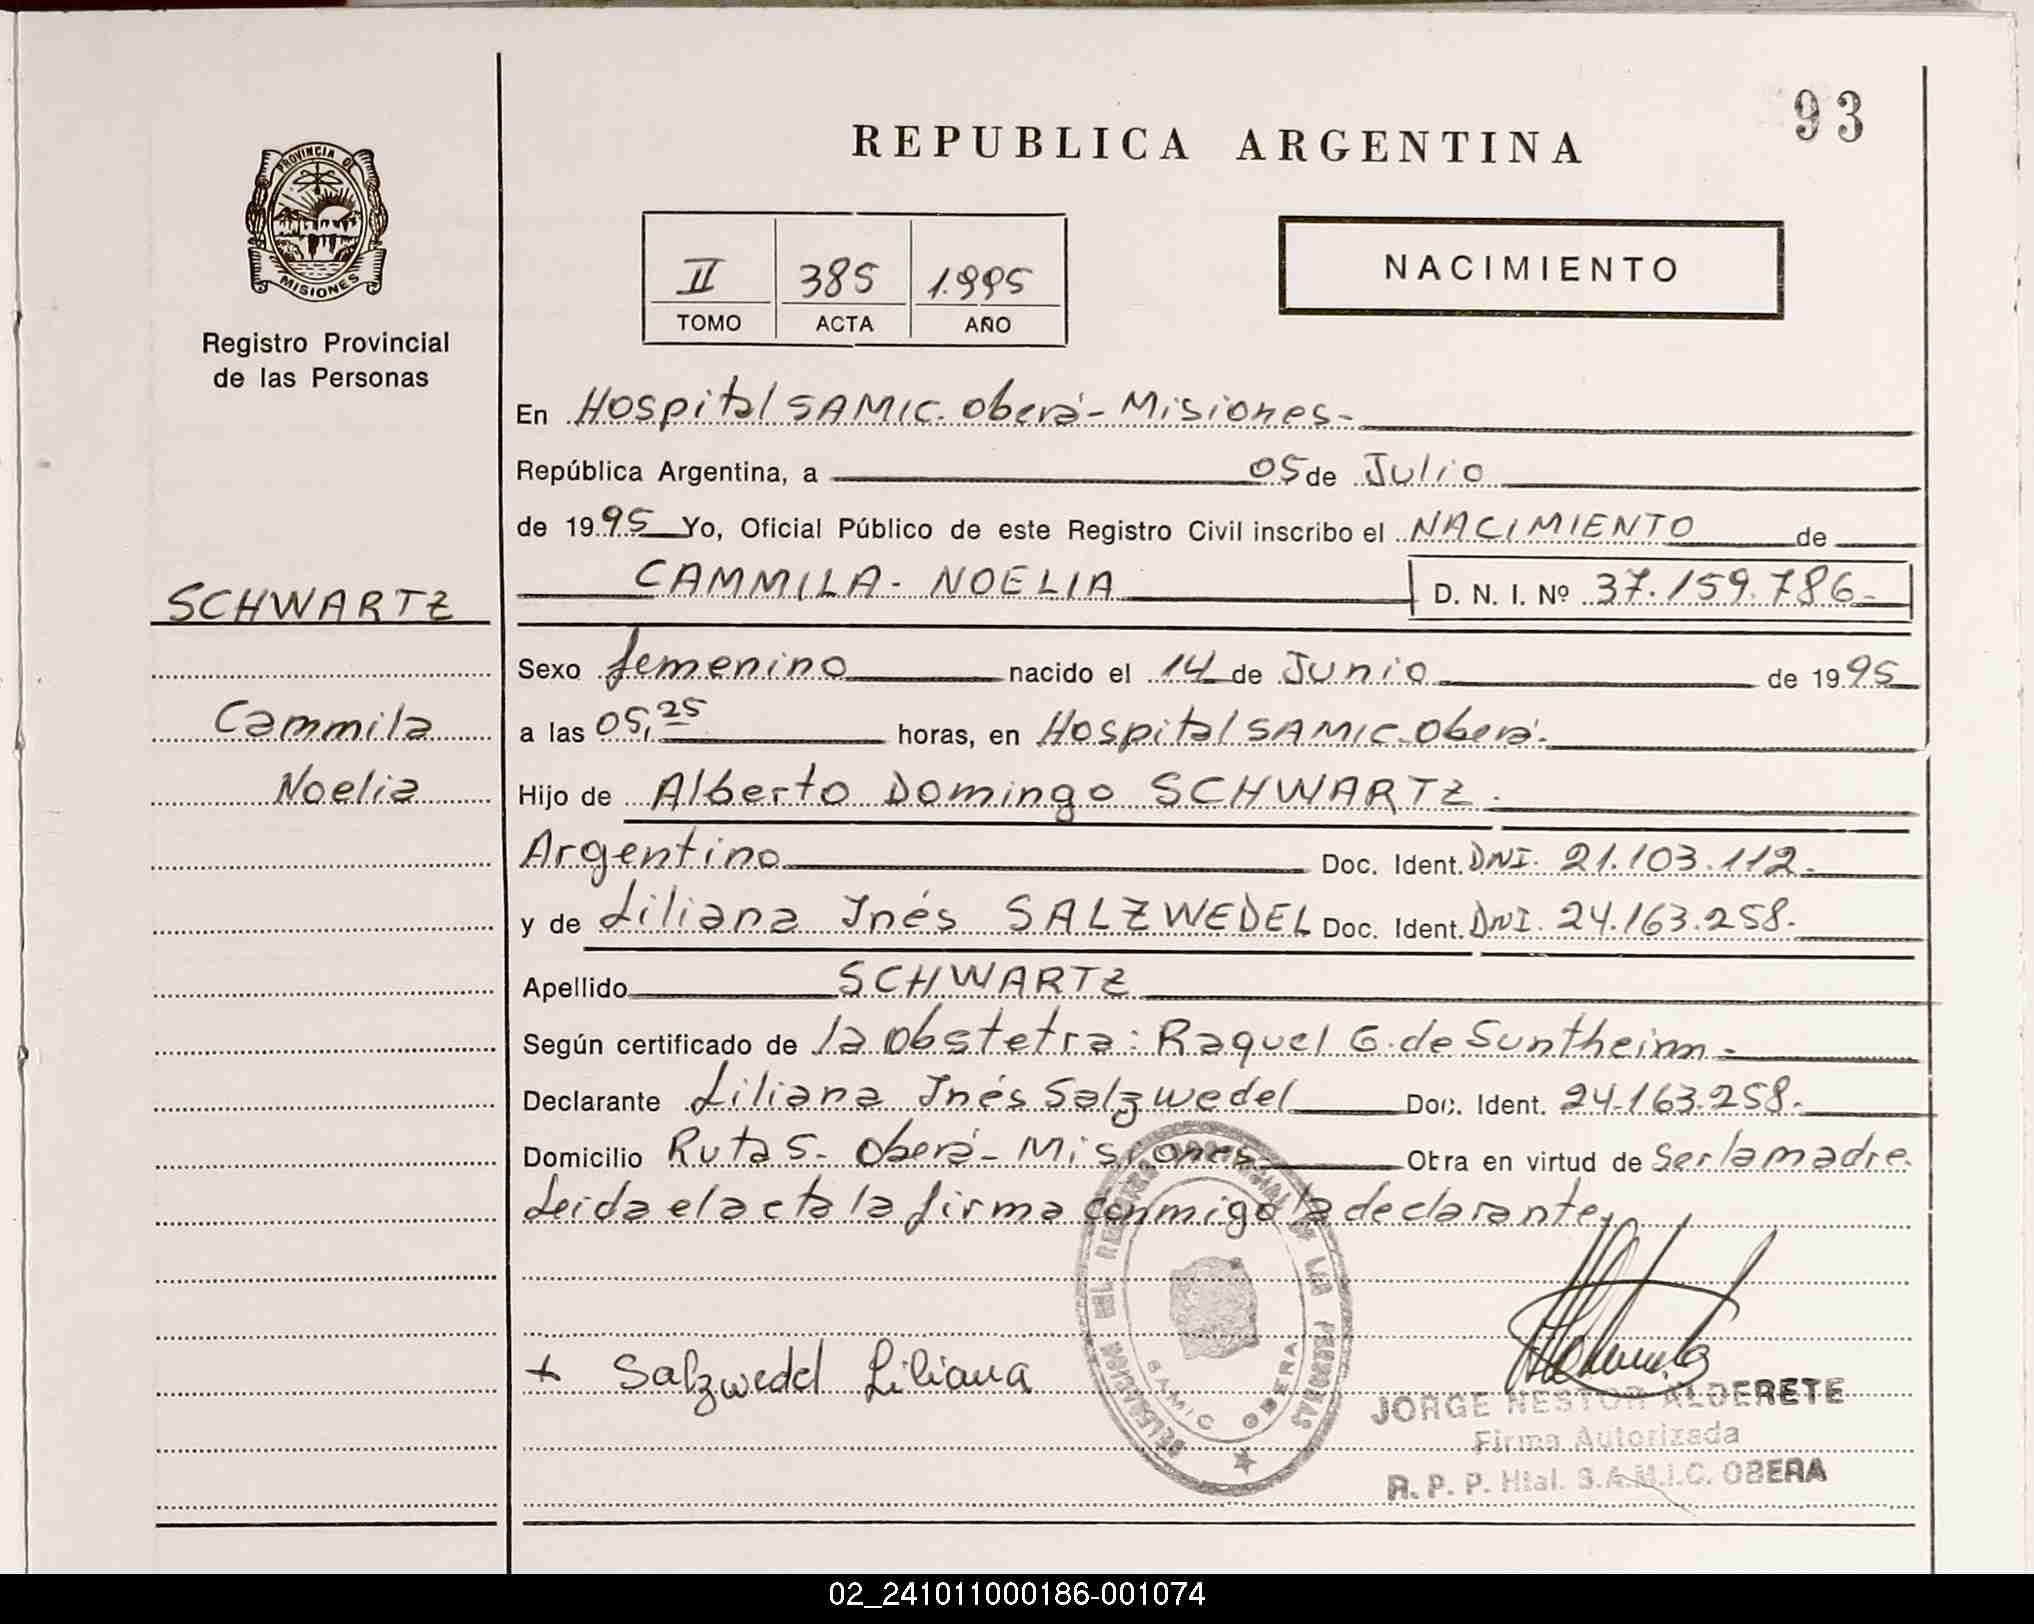 93
REPUBLICA ARGENTINA
PROVINCIA DE
MISIONES
Registro Provincial
de las Personas
II 385 1.995
TOMO ACTA AÑO
NACIMIENTO
En Hospital SAMIC. Oberá - Misiones -
República Argentina, a 05 de Julio
de 1995 Yo, Oficial Público de este Registro Civil inscribo el NACIMIENTO de
CAMMILA - NOELIA D. N. I. Nº 37.159.786.-
SCHWARTZ
Sexo femenino nacido el 14 de Junio de 1995
Cammila
a las 05,25 horas, en Hospital SAMIC. Oberá.
Noelia
Hijo de Alberto Domingo SCHWARTZ.
Argentino Doc. Ident. DNI. 21.103.112.
y de Liliana Inés SALZWEDEL Doc. Ident. DNI. 24.163.258.
Apellido SCHWARTZ
Según certificado de la obstetra: Raquel G. de Suntheim -
Declarante Liliana Inés Salzwedel Doc. Ident. 24.163.258.
Domicilio Ruta 5 - Oberá - Misiones Otra en virtud de Ser la madre.
Leida el acta la firma conmigo la declarante,
+ Salzwedel Liliana
DELEGACION DEL REGISTRO PROVINCIAL DE LAS PERSONAS
SAMIC OBERA
JORGE NESTOR ALDERETE
Firma Autorizada
R. P. P. Htal. S.A.M.I.C. OBERA
02_241011000186-001074